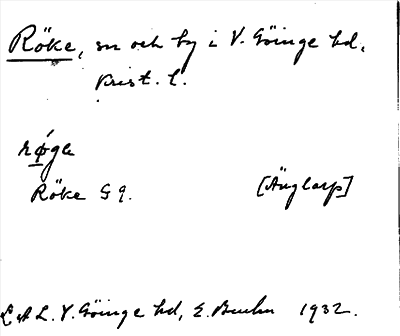 Röke, sn och by i V. Göinge hd,
Krist. l.
rǿge
Röke S 9. [Änglarp]
L A L. V. Göinge hd, E. Bruhn 1932.